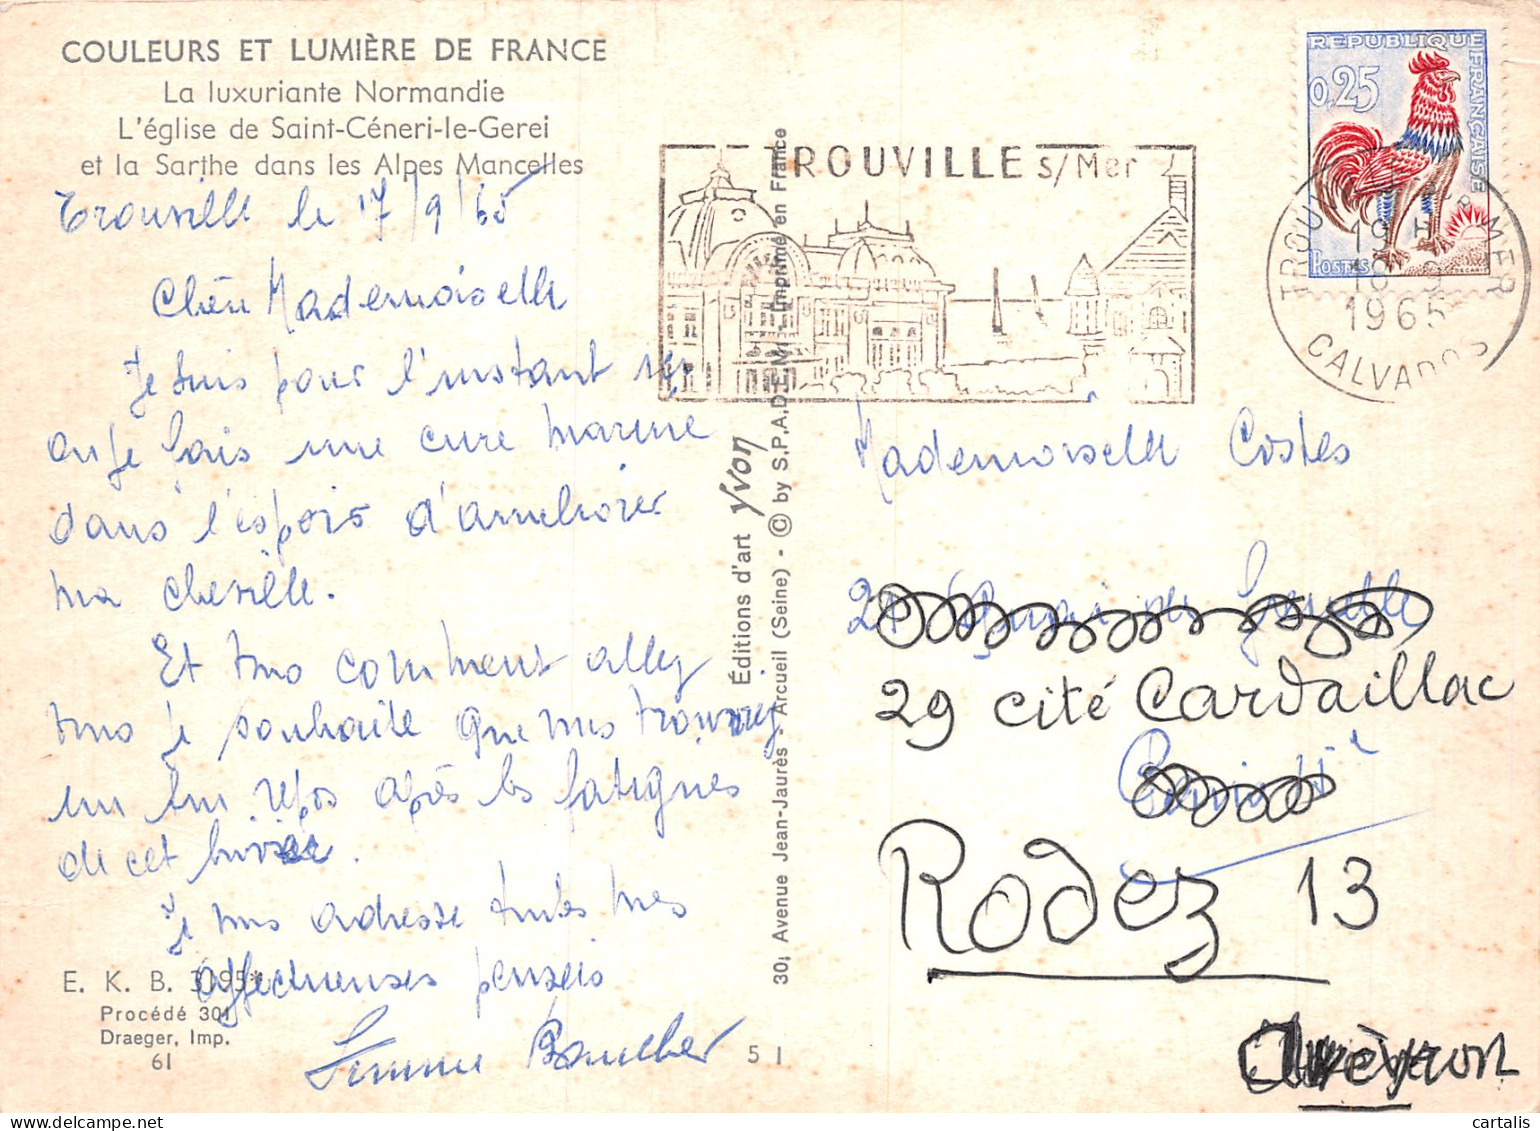 COULEURS ET LUMIÈRE DE FRANCE
La luxuriante Normandie
L'église de Saint-Céneri-le-Gerei
et la Sarthe dans les Alpes Mancelles
Trouville le 17/9/65
Chère Mademoiselle
Je suis pour l'instant ici
ou je fais une cure marine
dans l'espoir d'améliorer
ma cheville.
Et vous comment allez
vous je souhaite que vous trouviez
un bon repos après les fatigues
de cet hiver.
Je vous adresse toutes mes
affectueuses pensées
Simone Boucher
E. K. B. 3195*
Procédé 301
Draeger, Imp.
61
5 1
Éditions d'art Yvon
30, Avenue Jean-Jaurès - Arcueil (Seine) - © by S.P.A.D.E.M. - Imprimé en France
TROUVILLE s/Mer
REPUBLIQUE FRANÇAISE
0,25
POSTES
DECARIS
TROUVILLE SUR MER
19 H
18 9
1965
CALVADOS
Mademoiselle Costes
29 cité Cardaillac
Rodez 13
Aveyron
cartalis